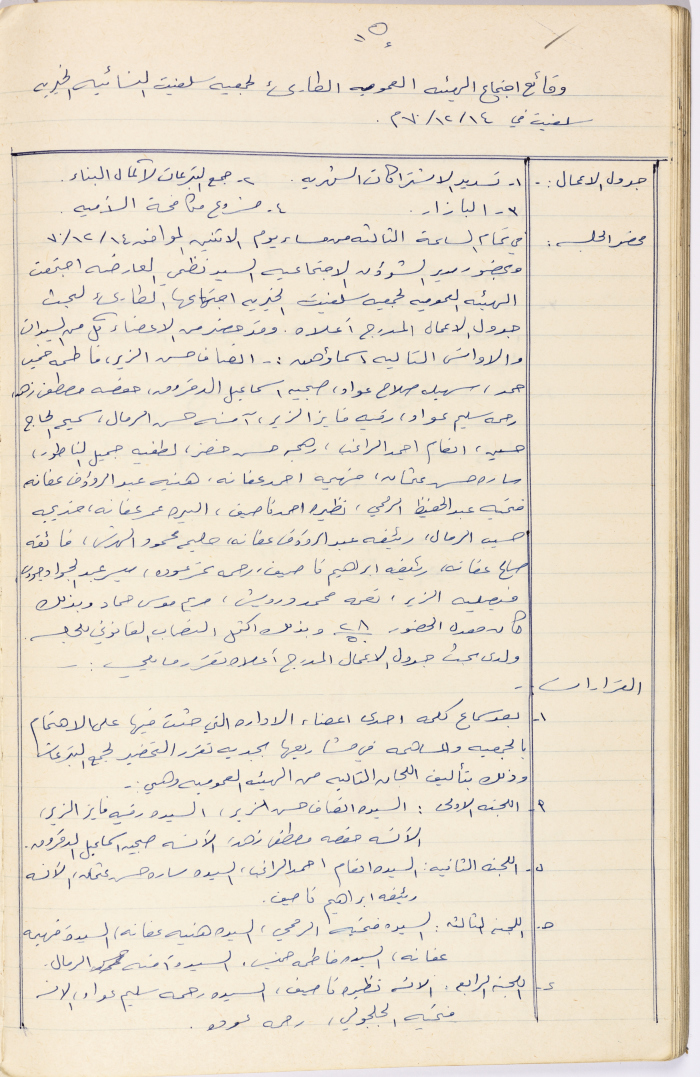 وقائع اجتماع الهيئه العموميه الطارئ لجمعيه سلفيت النسائيه الخيريه
سلفيت في ٧٠/١٢/١٤م.
جدول الاعمال :- ١- تسديد الاشتراكات الشهريه. ٢- جمع التبرعات لاكمال البناء.
٣- البازار. ٤- مشروع مكافحة الاميه.
محضر الجلسه: في تمام الساعة الثالثه من مساء يوم الاثنين الموافق ٧٠/١٢/١٤
وبحضور مدير الشؤون الاجتماعيه السيد نظمي العارضه اجتمعت
الهيئه العموميه لجمعيه سلفيت الخيريه اجتماعها الطارئ لبحث
جدول الاعمال المدرج أعلاه. وقد حضر من الاعضاء كل من السيدات
والاوانس التاليه اسماؤهن :- انصاف حسن الزير، فاطمه
حمد، سهيله صلاح عواد، صبحيه اسماعيل الدقروق، حفصه مصطفى زهد،
رحمه سليم عواد، رقيه فايز الزير، آمنه حسن الرمال، سميحه الحاج
حسين، انعام احمد الراغب، رهجه حسن خضر، لطفيه جميل الناطور،
ساره حسن عثمان، فهيمه احمد عفانه، هنيه عبد الرؤوف عفانه
فتحيه عبد الحفيظ الرمحي، نظيره احمد ناصيف، اليره عمر عفانه، خديجه
حسين الرمال، رئيفه عبد الرؤوف عفانه، حليمه محمود، فائقه
صالح عفانه، رئيفه ابراهيم ناصيف، رحمه عوده، عبد الجواد
فيصليه الزير، نعمه محمد درويش، مريم موسى حماد وبذلك
كان عدد الحضور ٢٨ وبذلك اكتمل النصاب القانوني للجلسه.
ولدى بحث جدول الاعمال المدرج أعلاه تقرر ما يلي :-
القرارات :-
١- بعد سماع كلمه احدى اعضاء الاداره التي حثت فيها على الاهتمام
بالجمعيه والمساهمه في مشاريعها بجديه تقرر التحضير لجمع التبرعات
وذلك بتأليف اللجان التاليه من الهيئه العموميه وهي :-
٩- اللجنه الاولى : السيده انصاف حسن الزير، السيده رقيه فايز الزير،
الآنسه حفصه مصطفى زهد، الآنسه صبحيه اسماعيل الدقروق.
ب- اللجنه الثانيه: السيده انعام احمد الراغب، السيده ساره حسن عثمان، الآنسه
رئيفه ابراهيم ناصيف.
ج- اللجنه الثالثه : السيده فتحيه الرمحي، السيده هنيه عفانه، السيدة فهيمه
عفانه، السيده فاطمه، السيدة آمنه الرمال.
د- اللجنه الرابعه: الآنسه نظيره ناصيف، السيده رحمه سليم عواد، الآنسه
فتحيه الجلجولي، رحمه عوده.